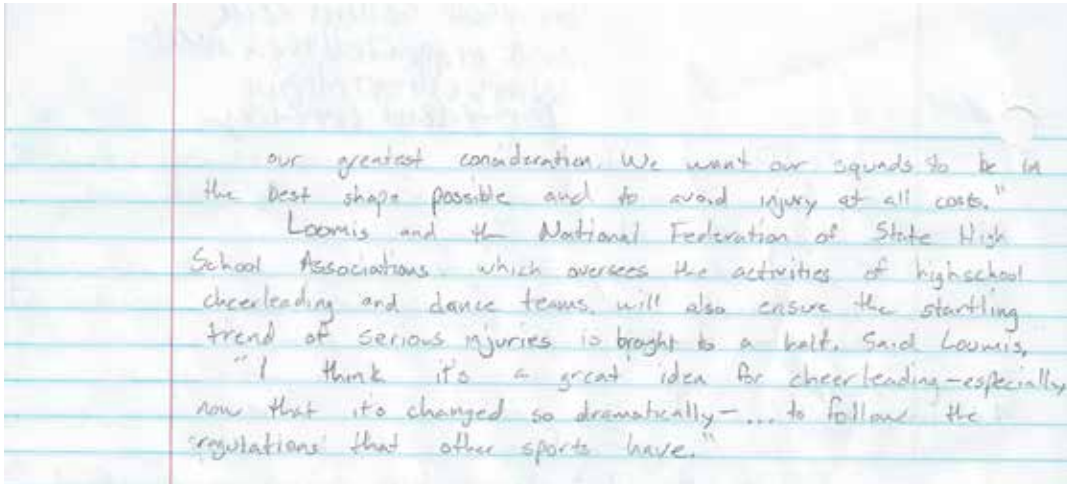 our greatest consideration. We want our squads to be in
the best shape possible and to avoid injury at all costs."
Loomis and the National Federation of State High
School Associations, which oversees the activities of highschool
cheerleading and dance teams, will also ensure the startling
trend of serious injuries is broght to a halt. Said Loomis,
"I think it's a great idea for cheerleading—especially
now that it's changed so dramatically—... to follow the
regulations that other sports have."